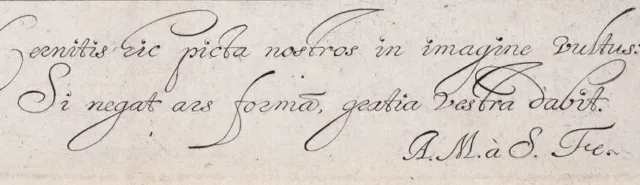 Cernitis hic picta nostros in imagine vultus:
Si negat ars formā, gratia vestra dabit.
A. M. à S. Fe.